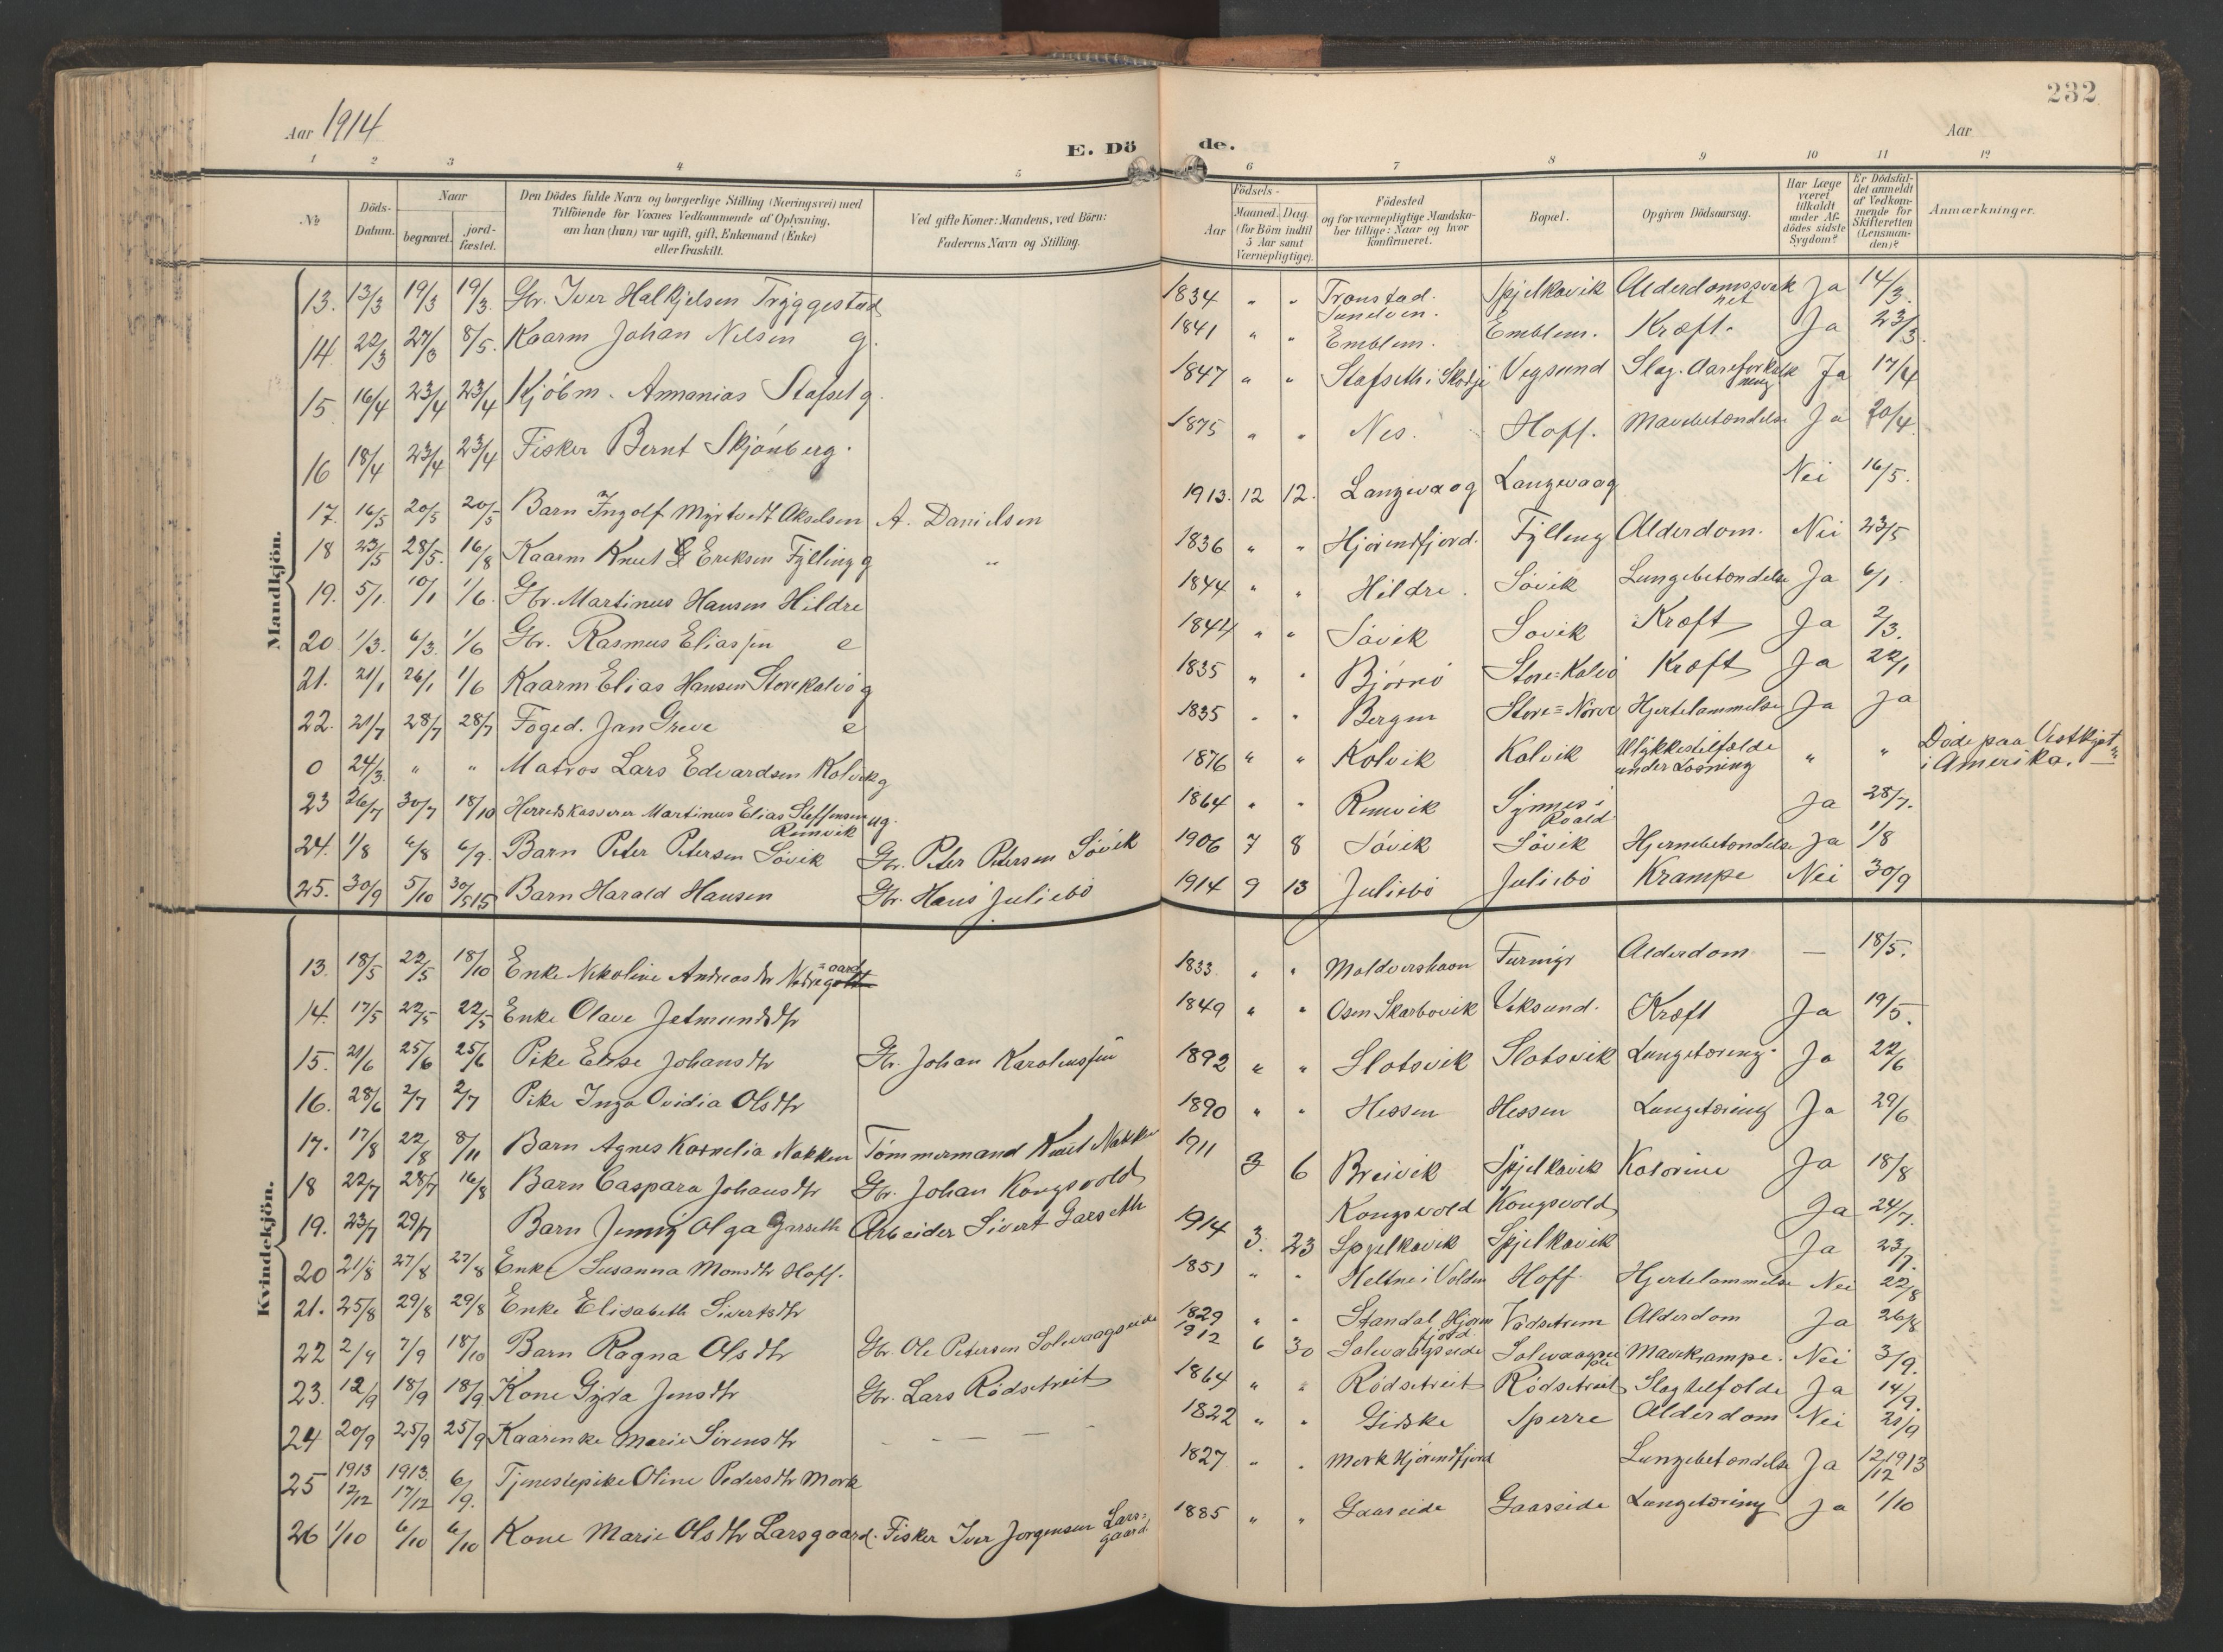 232
Aar 1914
E. Döde.
Aar
1 2 3 4 5 6 7 8 9 10 11 12
No
Döds-Datum.
Naar
begravet.
jord-fæstet.
Den Dödes fulde Navn og borgerlige Stilling (Næringsvei) med
Tilföiende for Voxnes Vedkommende af Oplysning,
om han (hun) var ugift, gift, Enkemand (Enke)
eller fraskilt.
Ved gifte Koner: Mandens, ved Börn:
Faderens Navn og Stilling.
Födsels-
Aar
Maaned. Dag.
(for Börn indtil
5 Aar samt
Værnepligtige).
Födested
og for værnepligtige Mandska-
ber tillige: Naar og hvor
konfirmeret.
Bopæl.
Opgiven Dödsaarsag.
Har Læge
været
tilkaldt
under Af-
dödes sidste
Sygdom?
Er Dödsfal-
det anmeldt
af Vedkom-
mende for
Skifteretten
(Lensman-
den)?
Anmærkninger.
Mandkjön.
13. 13/3 19/3 19/3. Gbr. Iver Halkjelsen Tryggestad 1834 " " Tronstad. Sunelven. Spjelkavik Alderdomssvakhet Ja 14/3.
14 22/3 27/3 8/5. Kaarm Johan Nilsen g. 1841 " " Emblem. Emblem. Kræft. Ja 23/3.
15 16/4 23/4 23/4 Kjöbm. Annanias Stafset g. 1847 " " Stafseth i Skodje Vegsund Slag. Aareforkalkning Ja 17/4
16 18/4 23/4 23/4 Fisker Bernt Skjönberg. 1875 " " Nes. Hoff. Mavebetændelse Ja 20/4.
17. 16/5 20/5 20/5 Barn Ingolf Myrtvedt Akselsen A. Danielsen 1913. 12 12. Langevaag Langevaag Nei 16/5.
18 23/5 28/5. 16/8 Kaarm Knut Eriksen Fylling g " 1836 " " Hjörendfjord. Fylling Alderdom. Nei 23/5
19. 5/1. 10/1 1/6. Gbr. Martinus Hansen Hildre 1844 " " Hildre. Sövik Lungebetændelse Ja 6/1.
20 1/3. 6/3. 1/6 Gbr. Rasmus Eliassen e 1844 " " Sövik Sövik Kræft Ja 2/3.
21. 21/1 26/1 1/6 Kaarm Elias Hansen Storekalvö g 1835 " " Bjørnö Store=Kalvö Kræft Ja 22/1
22. 21/7 28/7 28/7 Foged. Jan Greve e 1835 " " Bergen Store=Nörve Hjertelammelse Ja Ja
0 24/3. " " Matros Lars Edvardsen Kolvik g 1876 " " Kolvik Kolvik Ulykkestilfælde under Losning " " Döde paa Vestkysten i Amerika.
23 26/7 30/7 18/10 Herredskasserer Martinus Elias Steffensen Remvik ug. 1864 " " Remvik Synnes i Roald Ja 28/7.
24. 1/8 6/8 6/9. Barn Peter Petersen Sövik Gbr. Peter Petersen Sövik 1906 7 8 Sövik Sövik Hjernebetændelse Ja 1/8
25. 30/9 5/10 30/5 15 Barn Harald Hansen Gbr. Hans Juliebö 1914 9 13 Juliebö Juliebö Krampe Nei 30/9
Kvindekjön.
13. 18/5 22/5 18/10 Enke Nikoline Andreasdtr 1833. " " Furmyr Alderdom — 18/5.
14. 17/5 22/5 22/5 Enke Olave Jetmundsdtr 1849 " " Osen Skarbövik Veksund. Kræft Ja 19/5.
15. 21/6 25/6 25/6 Pike Elise Johansdtr Gbr. Johan Karoliussen 1892 " " Slotsvik Slotsvik Lungetæring. Ja 22/6
16. 28/6 2/7 2/7 Pike Inga Ovidia Olsdtr 1890 " " Hessen Hessen Lungetæring Ja 29/6
17. 17/8 22/8 8/11 Barn Agnes Kornelia Nakken Tömmermand Knut Nakken 1911 3 6 Breivik Spjelkavik Kolerine Ja 18/8
18 22/7 28/7 16/8 Barn Caspara Johansdtr Gbr. Johan Kongsvold Kongsvold Kongsvold Ja 24/7.
19. 23/7 29/7 Barn Jenny Olga Garseth Arbeider Sivert Garseth 1914 3. 23 Spjelkavik Spjelkavik Ja 23/7.
20 21/8 27/8 27/8 Enke Susanna Monsdtr Hoff. 1851 " " Heltne i Volden Hoff Hjertelammelse Nei 22/8
21. 25/8 29/8 29/8 Enke Elisabeth Sivertsdtr 1829 " " Standal Hjörendfjord Vadsetrem Alderdom Ja 26/8
22 2/9 7/9 18/10 Barn Ragna Olsdtr Gbr. Ole Petersen Solevaagseide 1912 6 30 Solevaagseide Solevaagseide Mavekrampe. Nei 3/9.
23. 12/9 18/9 18/9 Kone Gyda Jensdtr Gbr. Lars Rödsetreit 1864 " " Rödsetreit Rödsetreit Slagtilfælde Ja 14/9.
24 20/9 25/9 25/9 Kaarenke Marie Sörensdtr — — — — 1822 " " Giske Sperre Alderdom Nei 21/9
25 1913 12/12 1913. 17/12 6/9. Tjenestepike Oline Pedersdtr Mork 1827 " " Mork Hjörendfjord Lungebetændelse Ja 12/12 1913
26 1/10 6/10 6/10 Kone Marie Olsdtr Larsgaard. Fisker Iver Jörgensen Larsgaard 1885 " " Gaaseide Gaaseide Lungetæring Ja 1/10